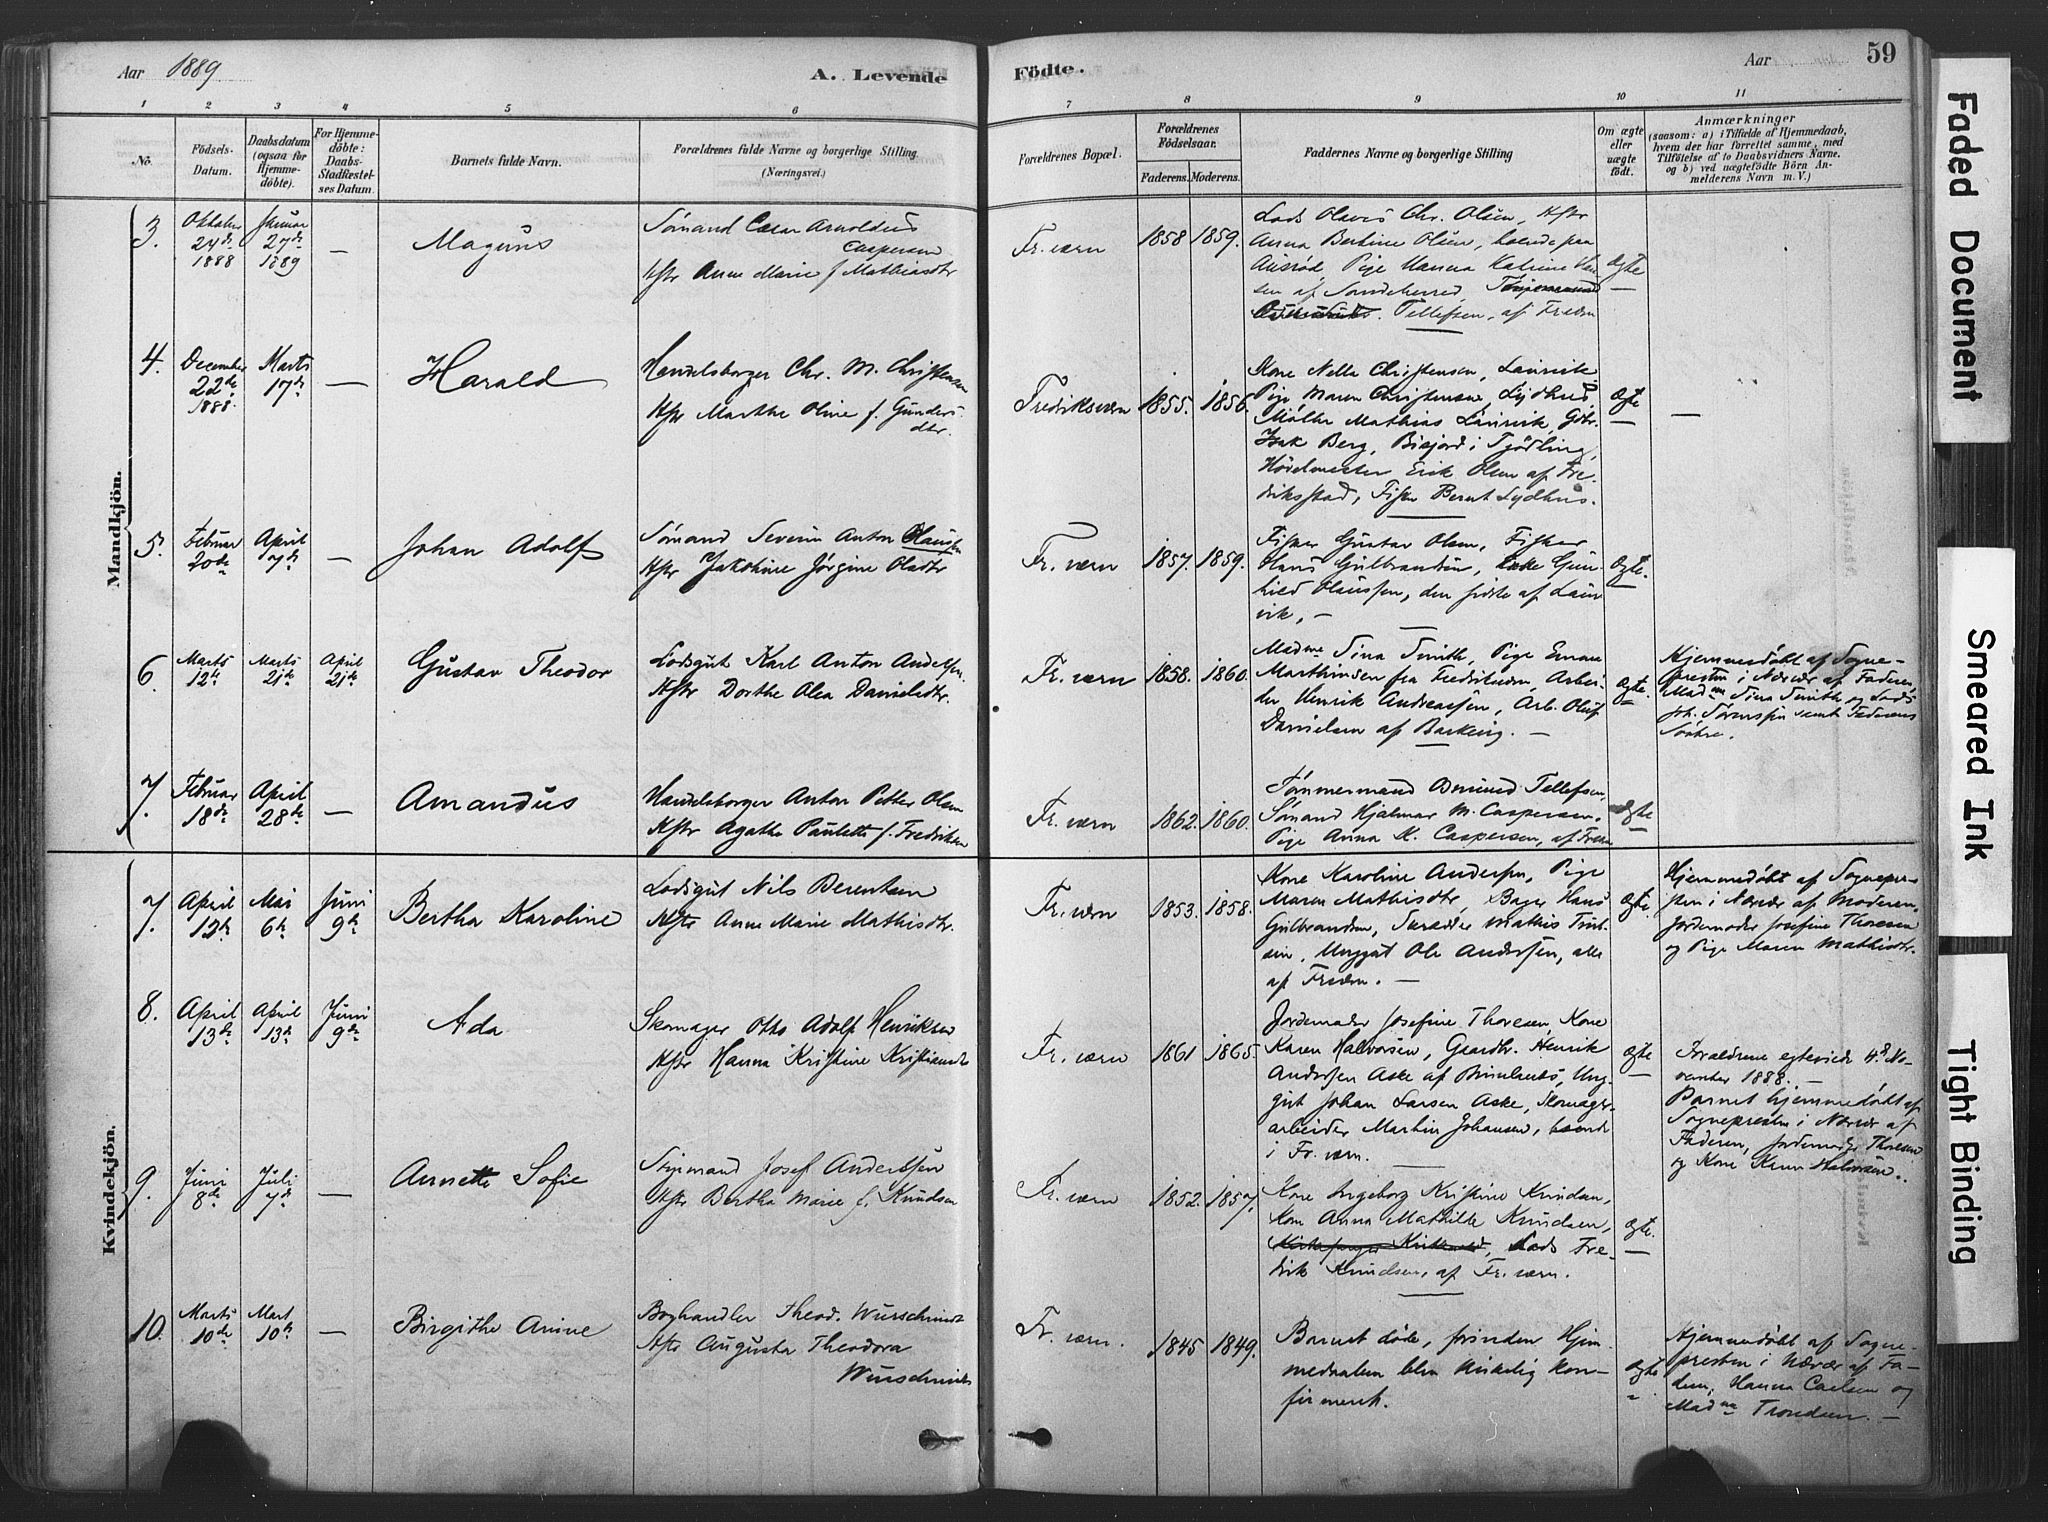 Aar 1889 A. Levende
Födte. Aar 59
1 2 3 4 5 6
7 8 9 10 11
No. Födsels-Datum. Daabsdatum (ogsaa for Hjemmedöbte). For Hjemmedöbte: Daabs-Stadfæstelses Datum. Barnets fulde Navn. Forældrenes fulde Navne og borgerlige Stilling (Næringsvei.)
Forældrenes Bopæl. Forældrenes Födselsaar. Faderens. Moderens. Faddernes Navne og borgerlige Stilling Om ægte eller uægte födt. Anmærkninger (saasom: a) i Tilfælde af Hjemmedaab, hvem der har forrettet samme, med Tilföielse af to Daabsvidners Navne. og b) ved uægtefödte Börn Anmelderens Navn m. V.)
Mandkjön.
3. Oktober 24de 1888 Januar 27de 1889 — Magnus
Sømand Cæsar Arnoldus
Caspersen
Hstr Anne Marie f. Mathiasdtr
Fr.værn 1858 1859.
Lods Olaves Chr. Olsen, Hstr
Anna Bertine Olsen, boende paa
Pige Hanna Katrine Han-
sen af Sandeherred,
Tellefsen, af Fredv
Ægte —
4. December 22de 1888. Marts 17de — Harald
Handelsborger Chr. M. Christensen
Hstr Marthe Oline f. Gunders
dtr.
Fredriksværn 1855. 1856.
Kone Nella Christensen, Laurvik
Pige Maren Christensen, Lydhus
Møller Mathias Laurvik, Gbr.
Isak Berg, Bisjord i Tjødling,
Høvelmester Erik Olsen af Fre-
driksstad, Fisker Bernt Lydhus.
Ægte — —
5. Februar 20de April 7de — Johan Adolf
Sømand Severin Anton Claussen
Hstr Jakobine Jørgine Oladtr
Fr.værn 1857. 1859.
Fisker Gustav Olsen, Fisker
Hans Gulbrandsen, Gun-
hild Claussen, den sidste af Laur-
vik, —
Ægte. —
6. Marts 12te Marts 21de April 21de Gustav Theodor
Lodsgut Karl Anton Andersen.
Hstr Dorthe Olea Danielsdtr.
Fr.værn 1858. 1860.
Madme Tina Smith, Pige Emma
Marthinsen fra Fredrikværn, Arbei-
der Henrik Andreassen, Arb. Oluf
Danielsen af Barkevig. —
Ægte. —
Hjemmedøbt af Sogne-
presten i Nærvær af Faderen,
Madme Tina Smith og Lods
Joh. Sørenssen samt Faderens
7. Februar 18de April 28de — Amandus
Handelsborger Anton Petter Olsen
Hstr Agathe Paulette f. Fredriksen
Fr.værn 1862. 1860.
Tømmermand Tellefsen,
Sømand Hjalmar M. Caspersen,
Pige Anna K. Caspersen, af Frværn
Ægte —
Kvindekjön.
7. April 12te Mai 6te Juni 9de Bertha Karoline
Lodsgut Nils Berentsen
Hstr Anne Marie Mathisdtr.
Fr.værn 1853. 1858.
Kone Karoline Andersen, Pige
Maren Mathisdtr, Bager Hans
Gulbrandsen, Skrædder Mathis
Unggut Ole Andersen, alle
af Frværn. —
Ægte. —
Hjemmedøbt af Sognepre-
sten i Nærvær af Moderen,
Jordemoder Josefine Thoresen
og Pige Maren Mathisdtr.
8. April 13de April 13de Juni 9de Ada
Skomager Otto Adolf Henriksen
Hstr Hanna Kristine Kristiansdtr
Fr.værn 1861 1865.
Jordemoder Josefine Thoresen, Kone
Karen Halvorsen, Gaardbr. Henrik
Andersen Aske af Brunlanæs, Ung-
gut Johan Larsen Aske, Skomager-
arbeider Martin Johansen, boende
i Fr.værn.
Ægte —
Forældrene egteviede 4de No-
vember 1888. —
Barnet hjemmedøbt af
Sognepresten i Nærvær af
Faderen, Jordemoder Thoresen
og Kone Karen Halvorsen..
9. Juni 8de Juli 7de — Annette Sofie
Styrmand Josef Anderssen
Hstr Bertha Marie f. Knudsen
Fr.værn 1852. 1857.
Kone Ingeborg Kristine Knudsen,
Kone Anna Mathilde Knudsen,
Lods Fre-
drik Knudsen, af Fr.værn.
Ægte. —
10. Marts 10de Mart 10de — Birgithe Anine
Boghandler Theod. Wurschmidt
Hstr Augusta Theodora
Wurschmidt
Fr.værn. 1845 1849.
Barnet døde, forinden Hjem-
medaaben blev kirkelig kon-
firmeret.
Ægte
Hjemmedøbt af Sogne-
presten i Nærvær af Fa-
deren, Hanna Carlsen og
Madme Trondsen. —
Faded Document
Smeared Ink
Tight Binding